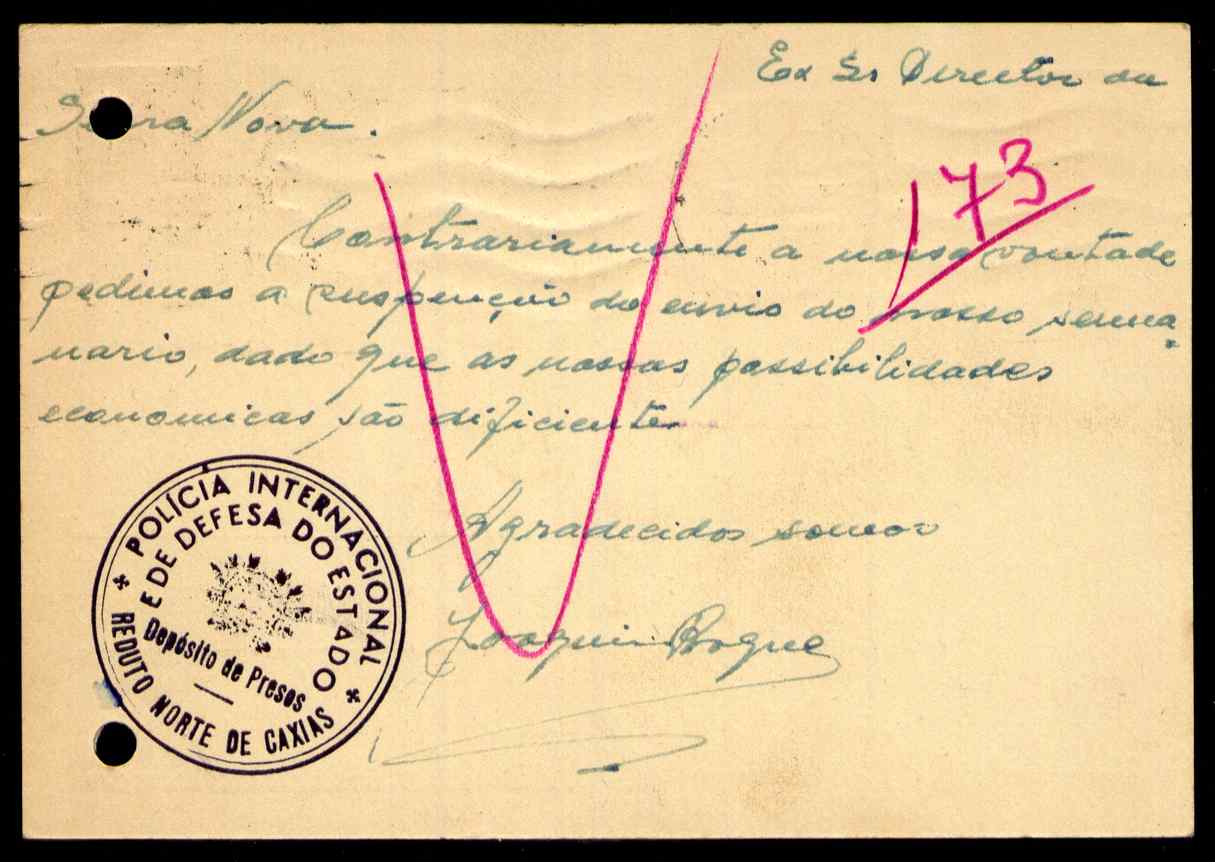 Ex Sr Director da
Seara Nova.
173
Contrariamente a nossa vontade
pedimos a suspenção do envio do nosso sema
nario, dado que as nossas possibilidades
economicas são dificiente
Agradecidos somos
Joaquim Roque
POLÍCIA INTERNACIONAL
E DE DEFESA DO ESTADO
Depósito de Presos
REDUTO NORTE DE CAXIAS